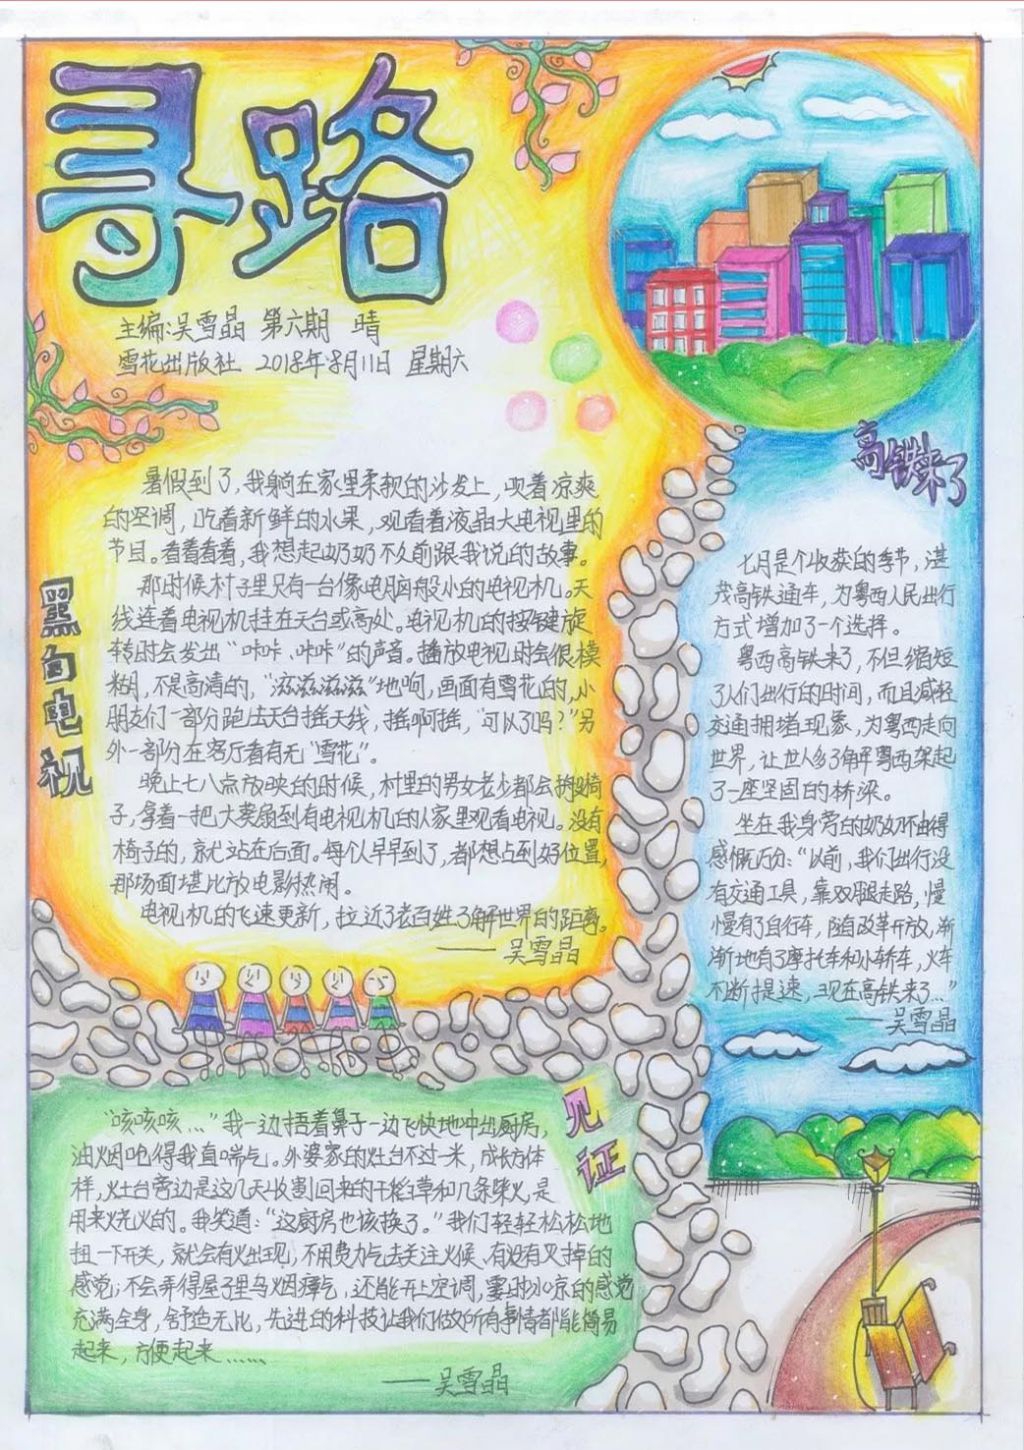 寻路
主编:吴雪晶 第六期 晴
雪花出版社 2018年8月11日 星期六
黑白电视
暑假到了,我躺在家里柔软的沙发上,吹着凉爽
的空调,吃着新鲜的水果,观看着液晶大电视里的
节目。看着看着,我想起奶奶不久前跟我说的故事。
那时候村子里只有一台像电脑般小的电视机。天
线连着电视机挂在天台或高处。电视机的按键旋
转时会发出“咔咔、咔咔”的声音。播放电视时会很模
糊,不是高清的,“滋滋滋滋”地响,画面有雪花的,小
朋友们一部分跑去天台摇天线,摇啊摇,“可以了吗?”另
外一部分在客厅看有无“雪花”。
晚上七八点放映的时候,村里的男女老少都会搬椅
子,拿着一把大葵扇到有电视机的人家里观看电视。没有
椅子的,就站在后面。每个人早早到了,都想占到好位置,
那场面堪比放电影热闹。
电视机的飞速更新,拉近了老百姓了解世界的距离。
——吴雪晶
高铁来了
七月是个收获的季节,湛
茂高铁通车,为粤西人民出行
方式增加了一个选择。
粤西高铁来了,不但缩短
了人们出行的时间,而且减轻
交通拥堵现象,为粤西走向
世界,让世人多了解粤西架起
了一座坚固的桥梁。
坐在我身旁的奶奶不由得
感慨万分:“以前,我们出行没
有交通工具,靠双腿走路,慢
慢有了自行车,随着改革开放,渐
渐地有了摩托车和小轿车,火车
不断提速,现在高铁来了…”
——吴雪晶
见证
“咳咳咳…”我一边捂着鼻子一边飞快地冲出厨房,
油烟呛得我直喘气。外婆家的灶台不过一米,成长方体
样,灶台旁边是这几天收割回来的干稻草和几条柴火,是
用来烧火的。我笑道:“这厨房也该换了。”我们轻轻松松地
扭一下开关,就会有火出现,不用费力气去关注火候、有没有灭掉的
感觉;不会弄得屋子里乌烟瘴气,还能开上空调,霎时冰凉的感觉
充满全身,舒适无比,先进的科技让我们做所有事情都能简易
起来,方便起来……
——吴雪晶